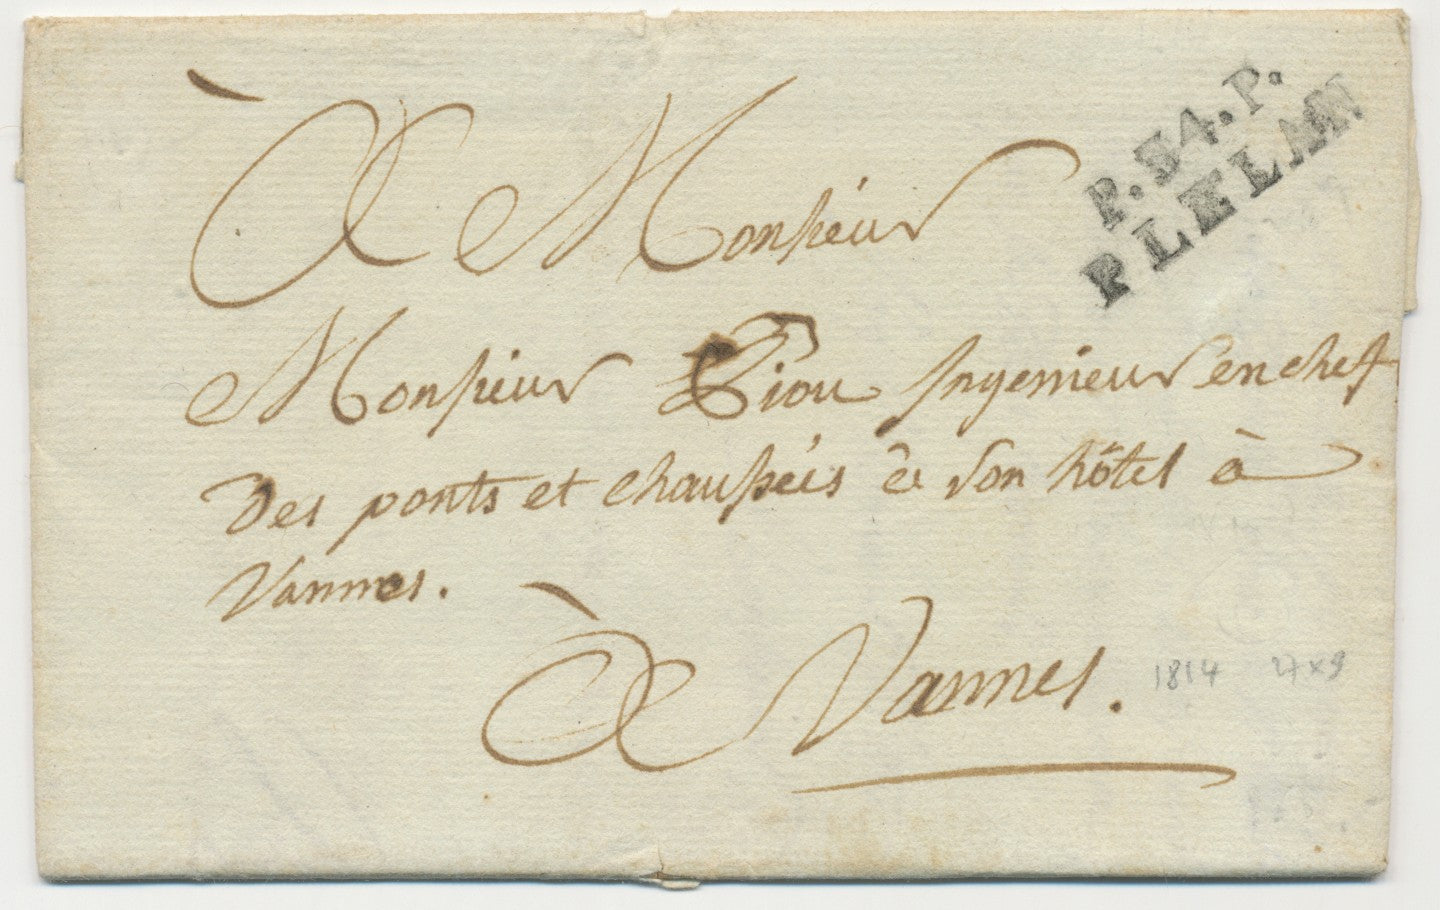 P.34.P.
PLELAN
À Monsieur
Monsieur Piou Ingenieur en chef
Des ponts et chaussées en son hôtel à
Vannes.
À Vannes.
1814 27x9